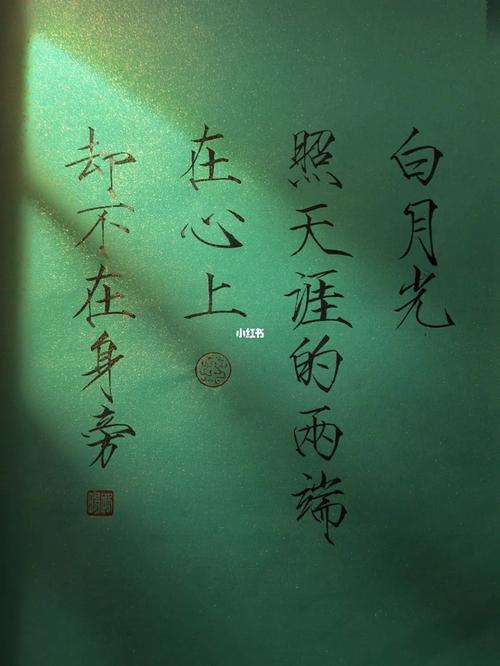 白月光
照天涯的两端
在心上
却不在身旁
小红书